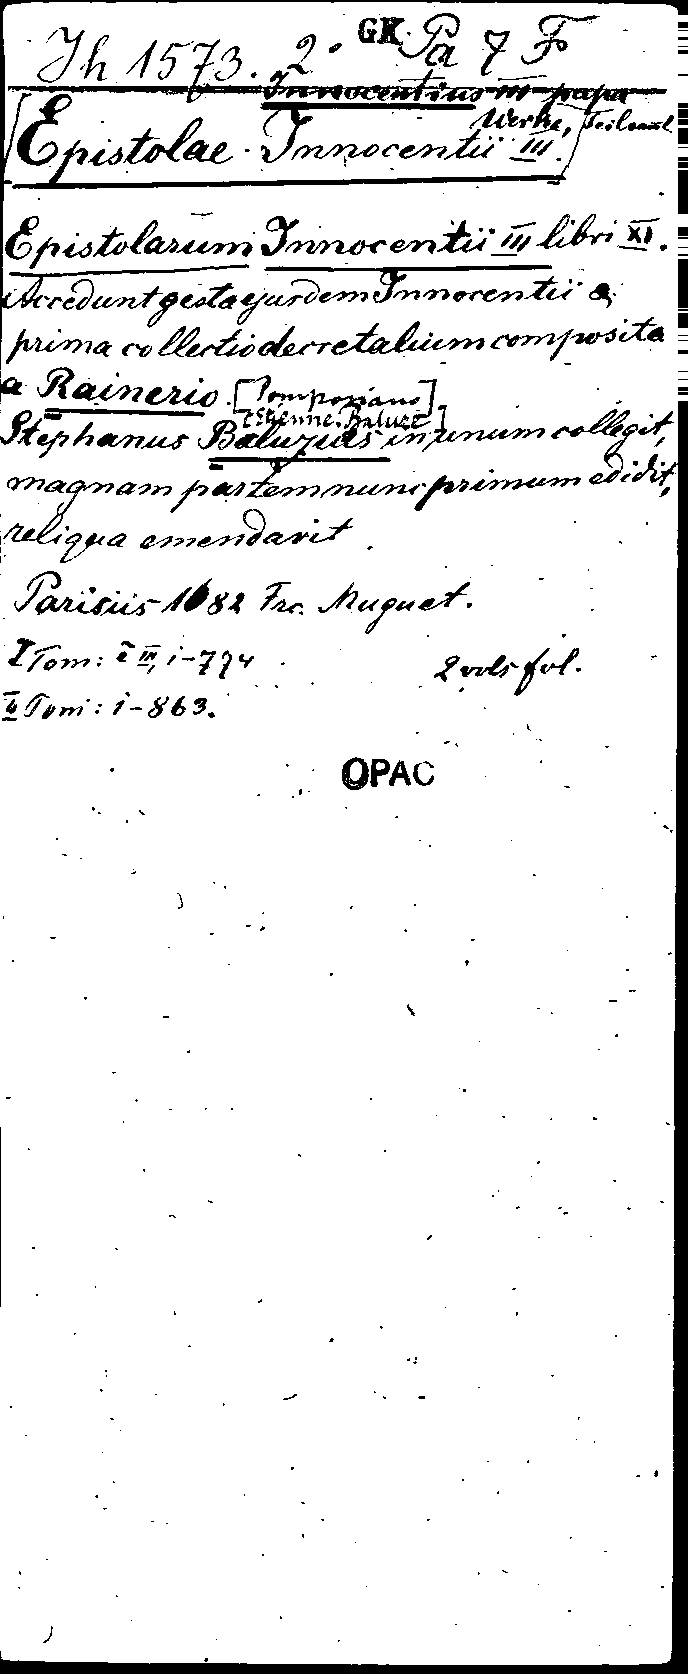 Jh 1573. 2° GK. Pa 7 F
Innocentius III papa
Werke, Teilsaml.
[Epistolae Innocentii III.]
Epistolarum Innocentii III libri XI.
Accedunt gesta ejusdem Innocentii &
prima collectio decretalium composita
a Rainerio [Pomposiano]
[Etienne Baluze]
Stephanus Baluzius in unum collegit,
magnam partem nunc primum edidit,
reliqua emendavit.
Parisiis 1682 Frc. Muguet.
I Tom: III, 1-774 2 vols fol.
II Tom: 1-863.
OPAC